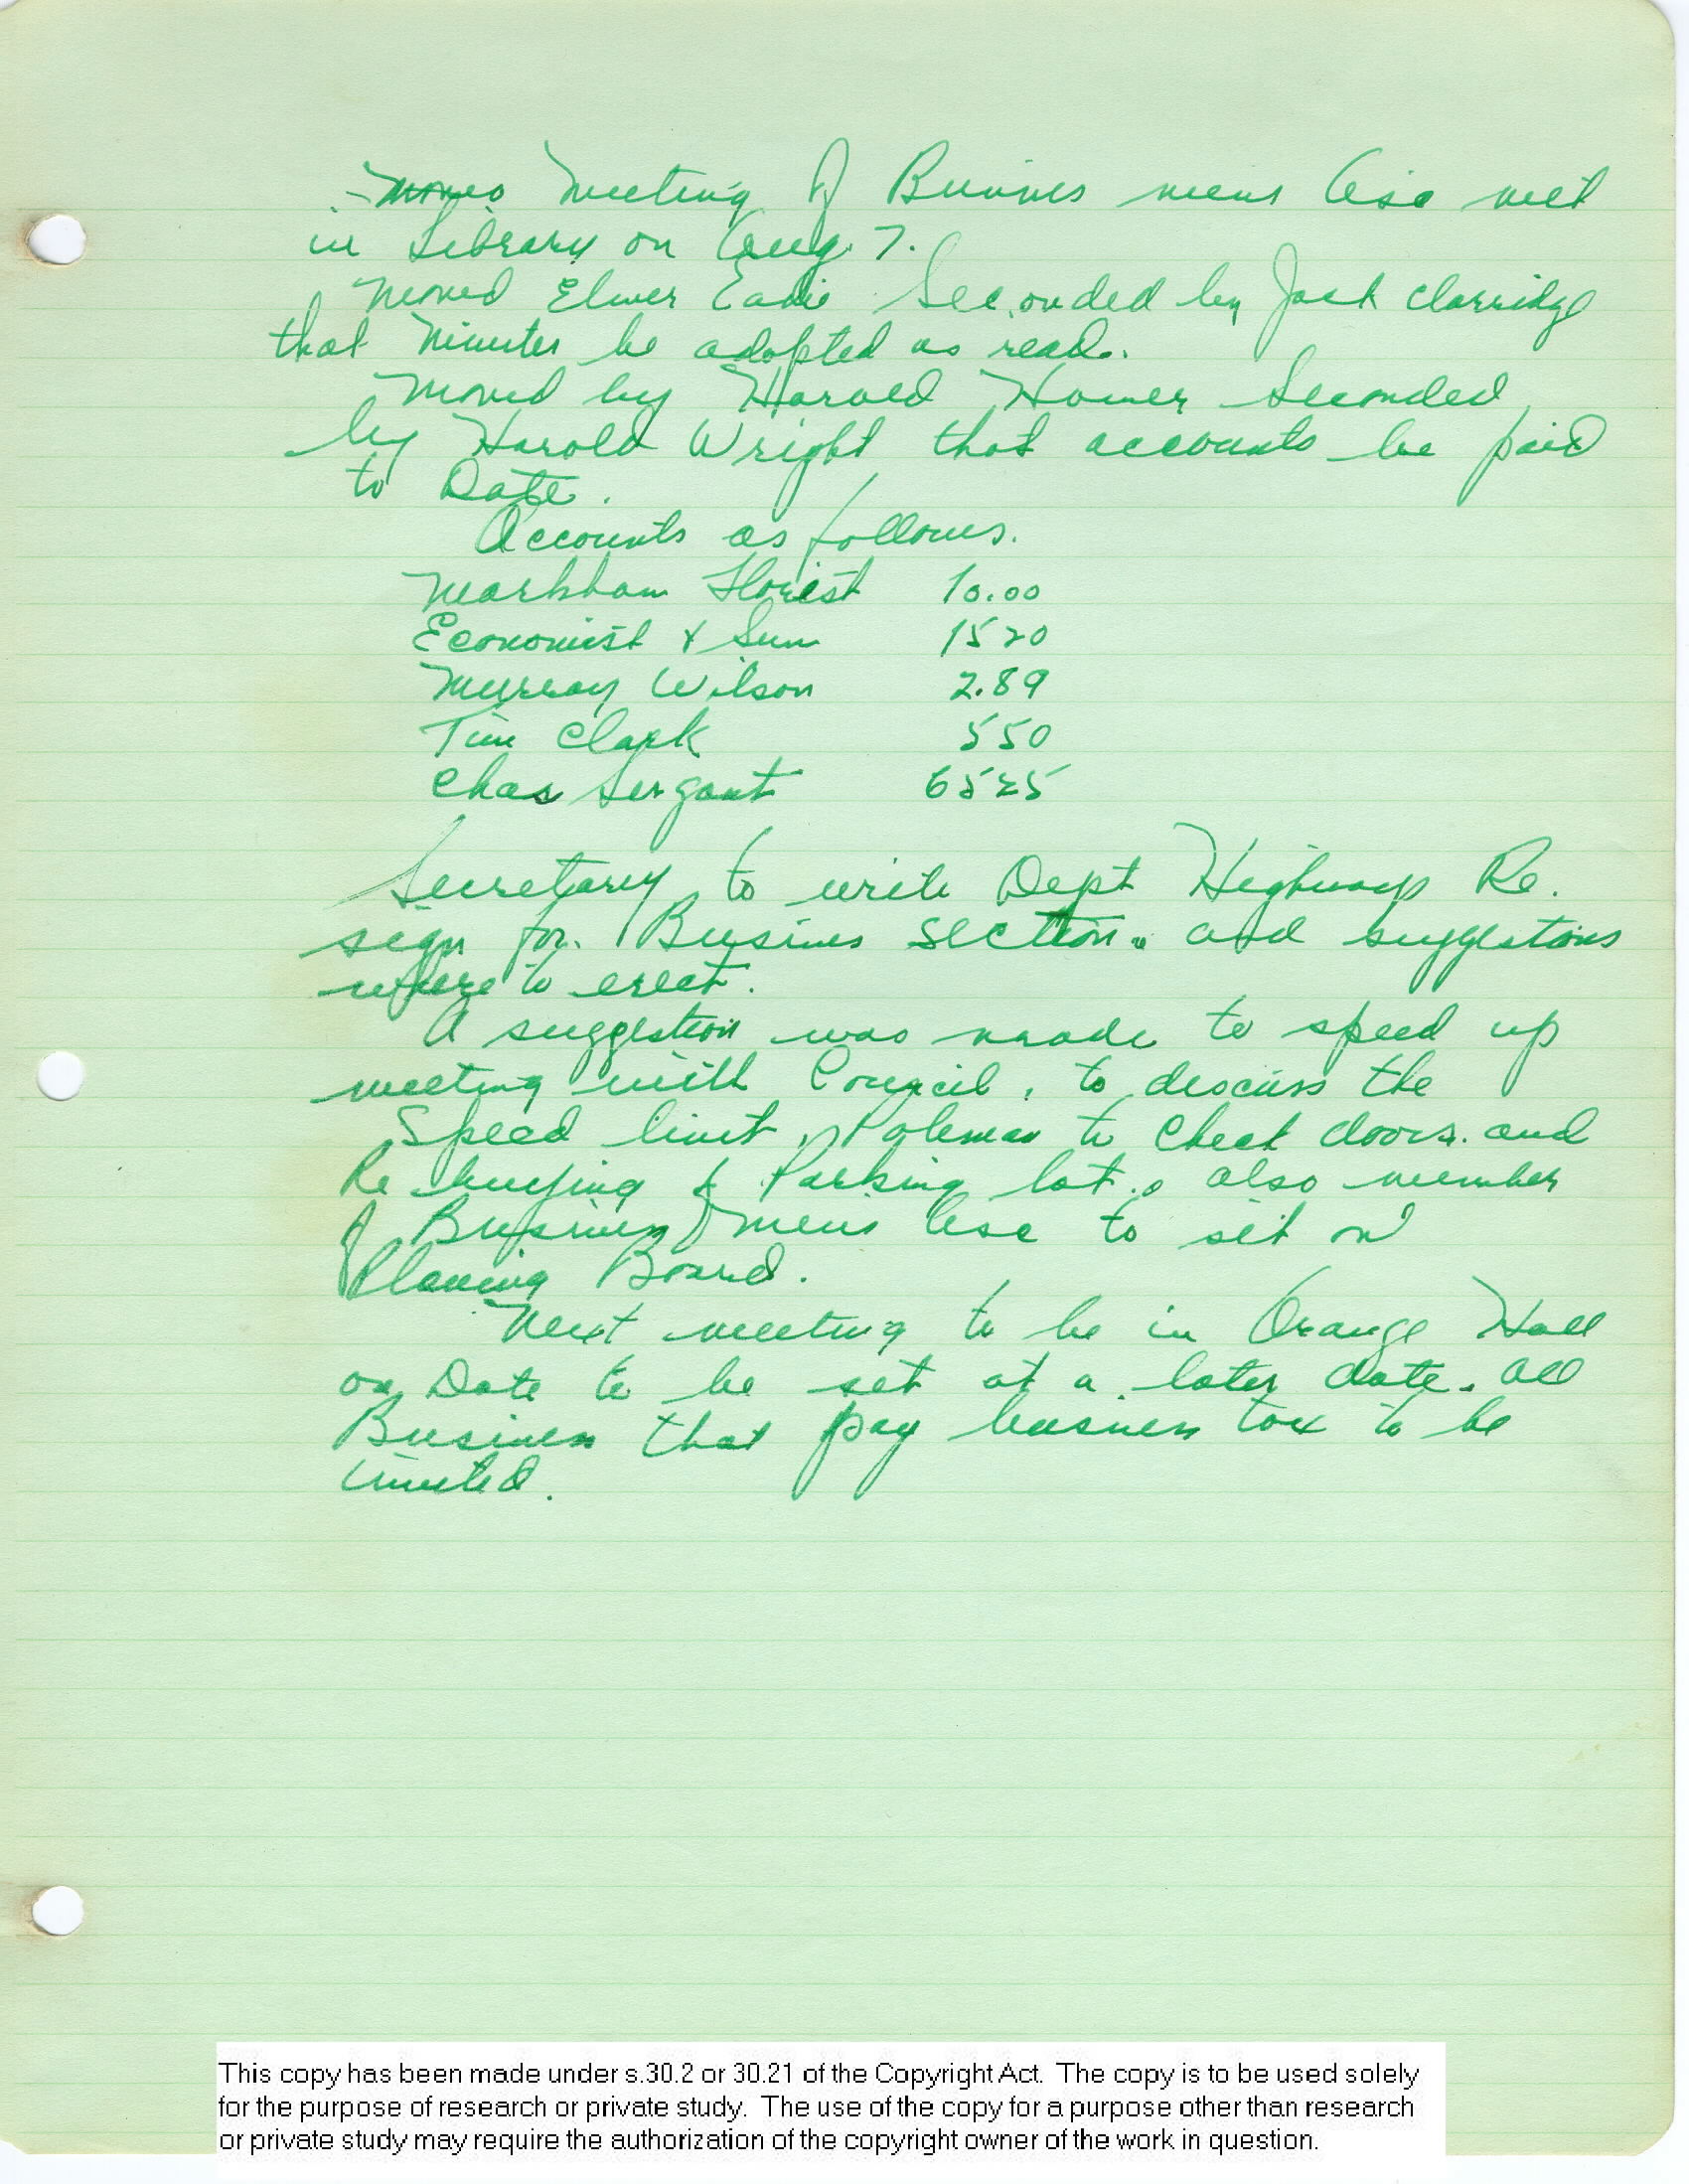 Meeting of Business mens Asc met
in Library on Aug. 7.
Moved Elmer Eadie Seconded by Jack Clarridge
that Minutes be adopted as read.
Moved by Harold Homer Seconded
by Harold Wright that accounts be paid
to Date.
Accounts as follows.
Markham Florist 10.00
Economist & Sun 15 20
Murray Wilson 2.89
Tim Clark 5 50
Chas Sergant 65 25
Secretary to write Dept Highways Re.
sign for Business section. and suggestions
where to erect.
A suggestion was made to speed up
meeting with Council, to discuss the
Speed limit, Poleman to Check doors. and
Re buying of Parking lot. also member
of Business mens Asc to sit on
Planing Board.
Next meeting to be in Orange Hall
on Date to be set at a later date. All
Business that pay business tax to be
invited.
This copy has been made under s.30.2 or 30.21 of the Copyright Act. The copy is to be used solely
for the purpose of research or private study. The use of the copy for a purpose other than research
or private study may require the authorization of the copyright owner of the work in question.